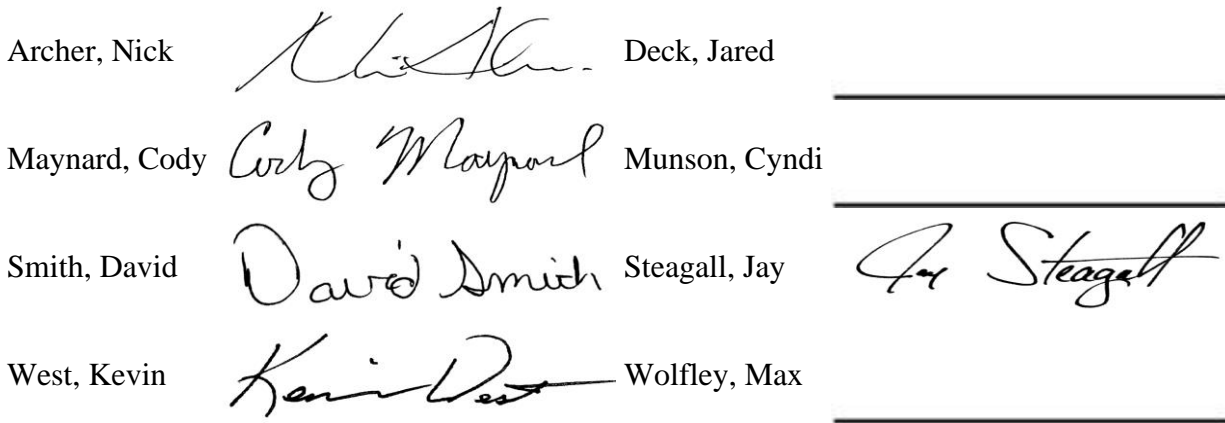 Archer, Nick Deck, Jared
Maynard, Cody Cody Maynard Munson, Cyndi
Smith, David David Smith Steagall, Jay Jay Steagall
West, Kevin Kevin West Wolfley, Max